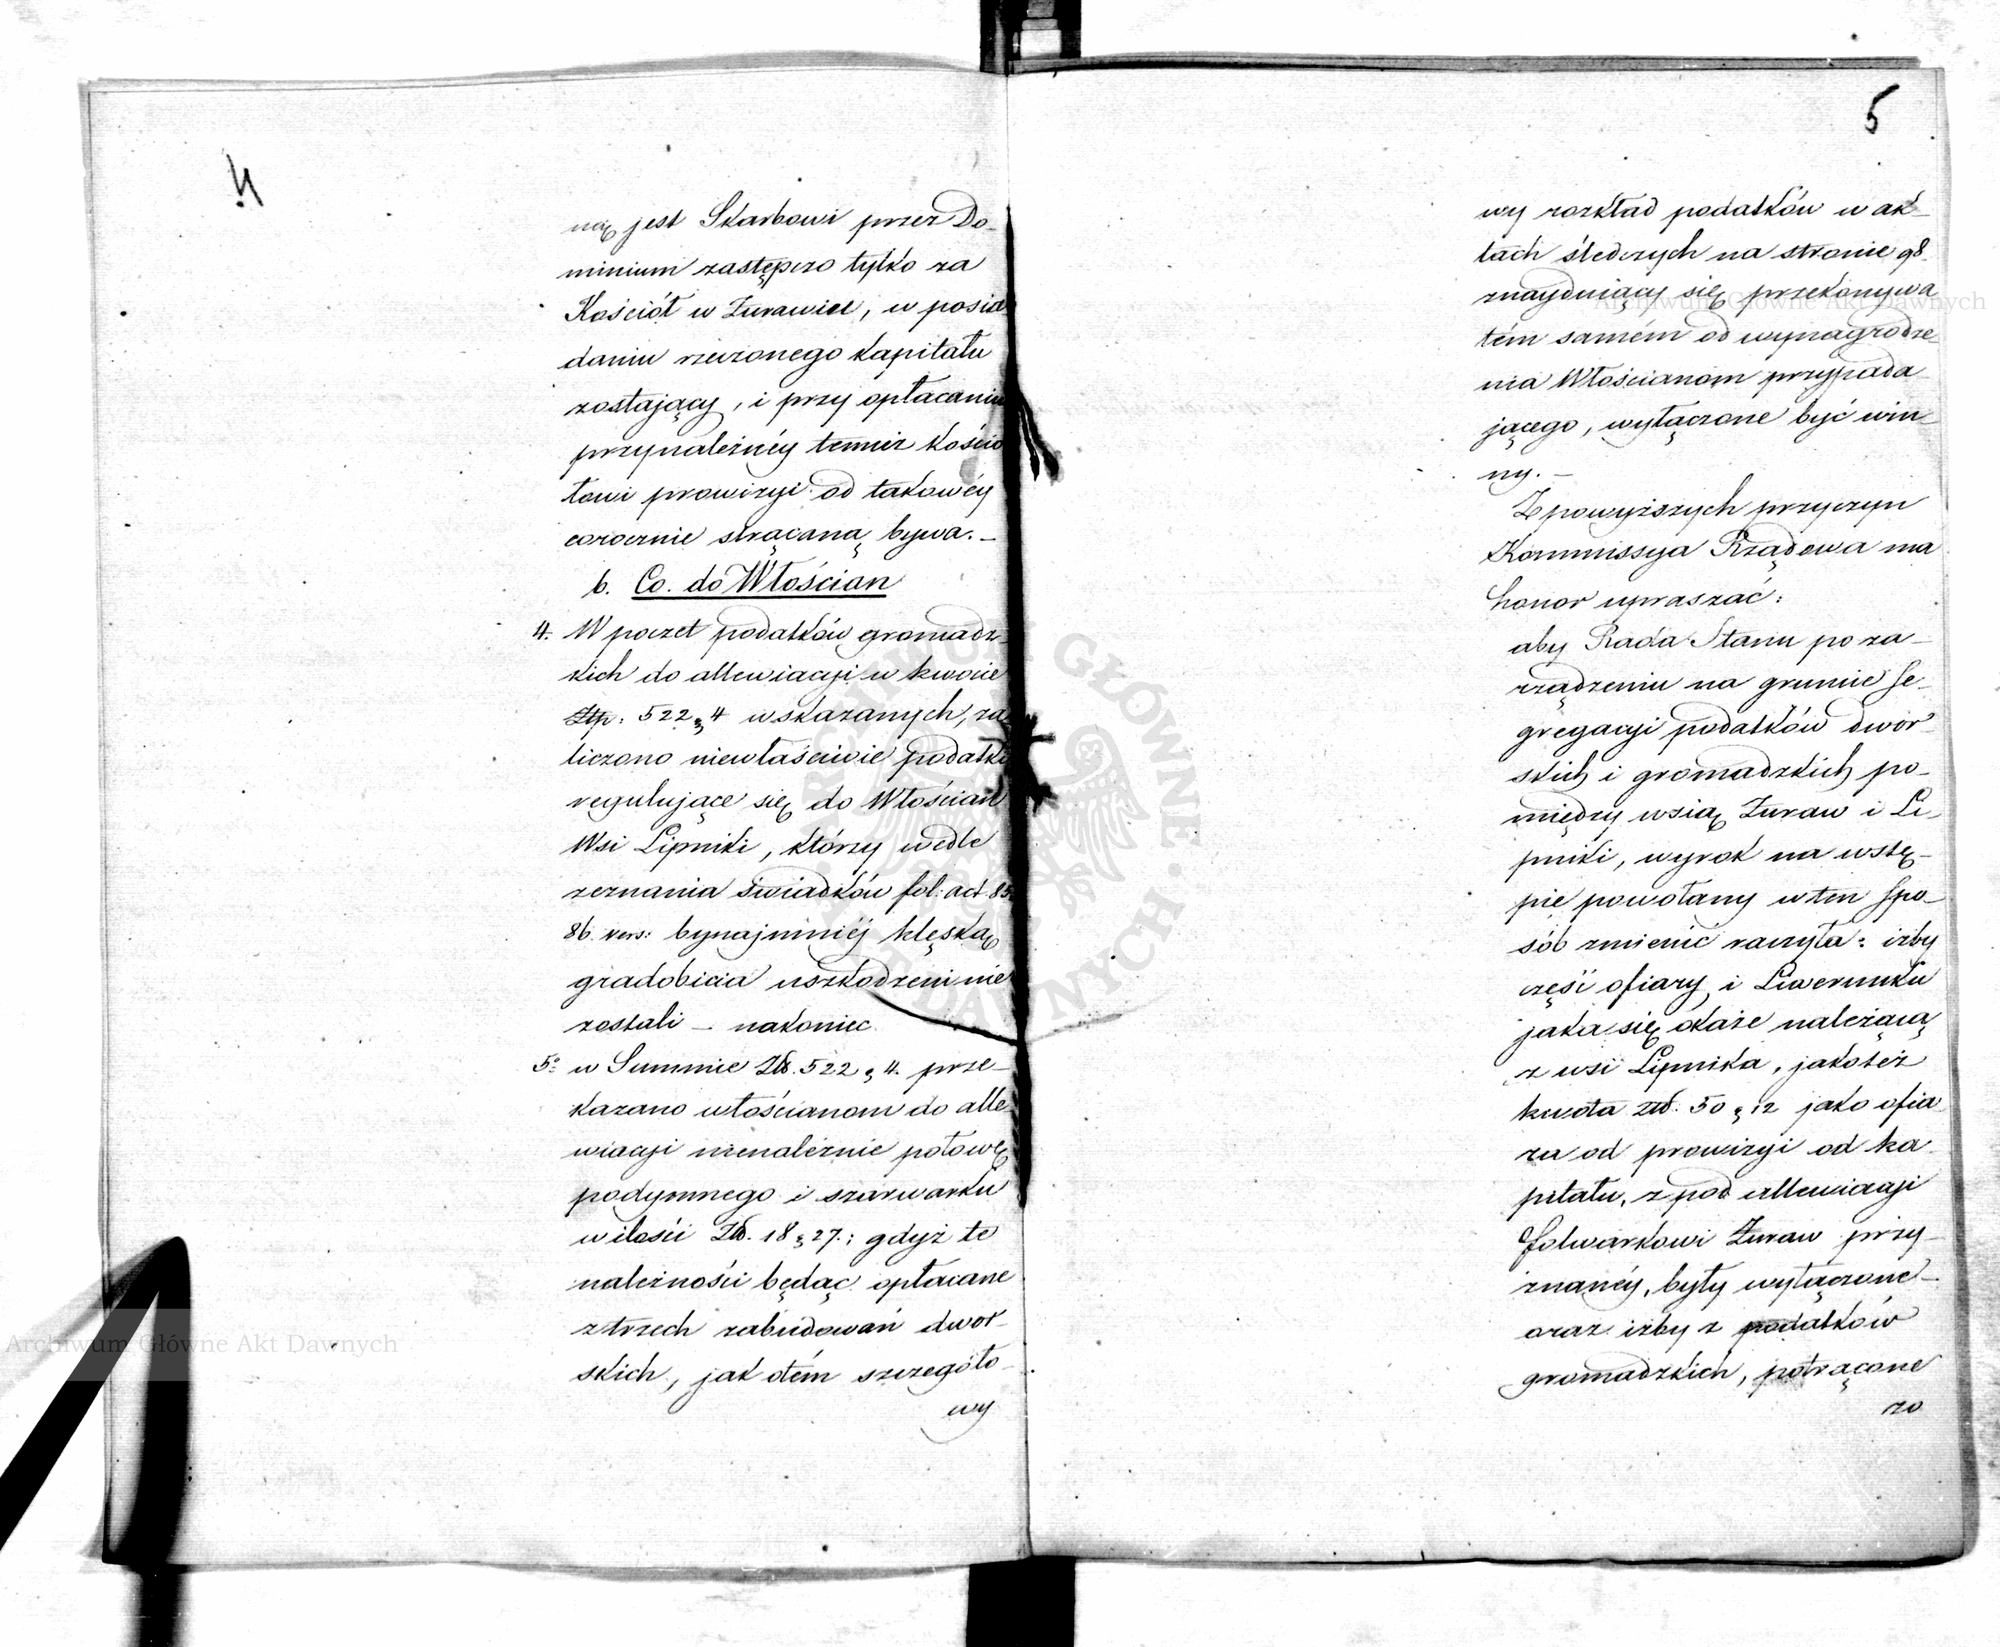 4
ną jest Skarbowi przez Do-
minium zastępczo tylko za
Kościół w Żurawiu, w posia
daniu rzeczonego kapitału
zostający, i przy opłacaniu
przynależnéy temuż kościo
łowi prowizyi od takowéy
corocznie strącaną bywa. –
b. Co. do Włościan
4. W poczet podatków gromadz-
kich do allewiacyi w kwocie
Złp: 522 g 4 wskazanych, za
liczono niewłaściwie podatki
regulujące się do Włościan
Wsi Lipniki, którzy wedle
zeznania świadków fol: act 85.
86. vers: bynajmniéj klęską
gradobicia uszkodzeni nie
zostali – nakoniec
5º w Summie Zło. 522 g 4. prze-
kazano włościanom do alle-
wiacyi nienależnie połowę
podymnego i szarwarku
w ilości Zło. 18 g 27.; gdyż te
należności będąc opłacane
z trzech zabudowań dwor-
skich, jak o tém szczegóło-
wy
5
wy rozkład podatków w ak-
tach śledczych na stronie 98.
znayduiący się przekonywa
tém samém od wynagrodze-
nia Włościanom przypada-
jącego, wyłączone być win-
ny. –
Z powyższych przyczyn
Kommissya Rządowa ma
honor upraszać:
aby Rada Stanu po za-
rządzeniu na gruncie se-
gregacyi podatków dwor-
skich i gromadzkich po-
między wsią Żuraw i Li-
pniki, wyrok na wstę-
pie powołany w ten spo-
sób zmienić raczyła: iżby
część ofiary i Liwerunku
jaka się okaże należącą
z wsi Lipnika, jakoteż
kwota Zło. 50 g 12 jako ofia
ra od prowizyi od ka-
pitału, z pod allewiacyi
folwarkowi Żuraw przy-
znanéy, były wyłączone –
oraz iżby z podatków
gromadzkich, potrącone
zo
Archiwum Główne Akt Dawnych
Archiwum Główne Akt Dawnych
ARCHIWUM GŁÓWNE AKT DAWNYCH